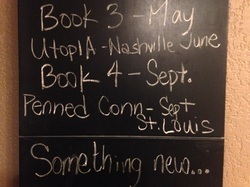 Book 3 - May
UtopIA - Nashville June
Book 4 - Sept.
Penned Conn - Sept
St. Louis
Something new...